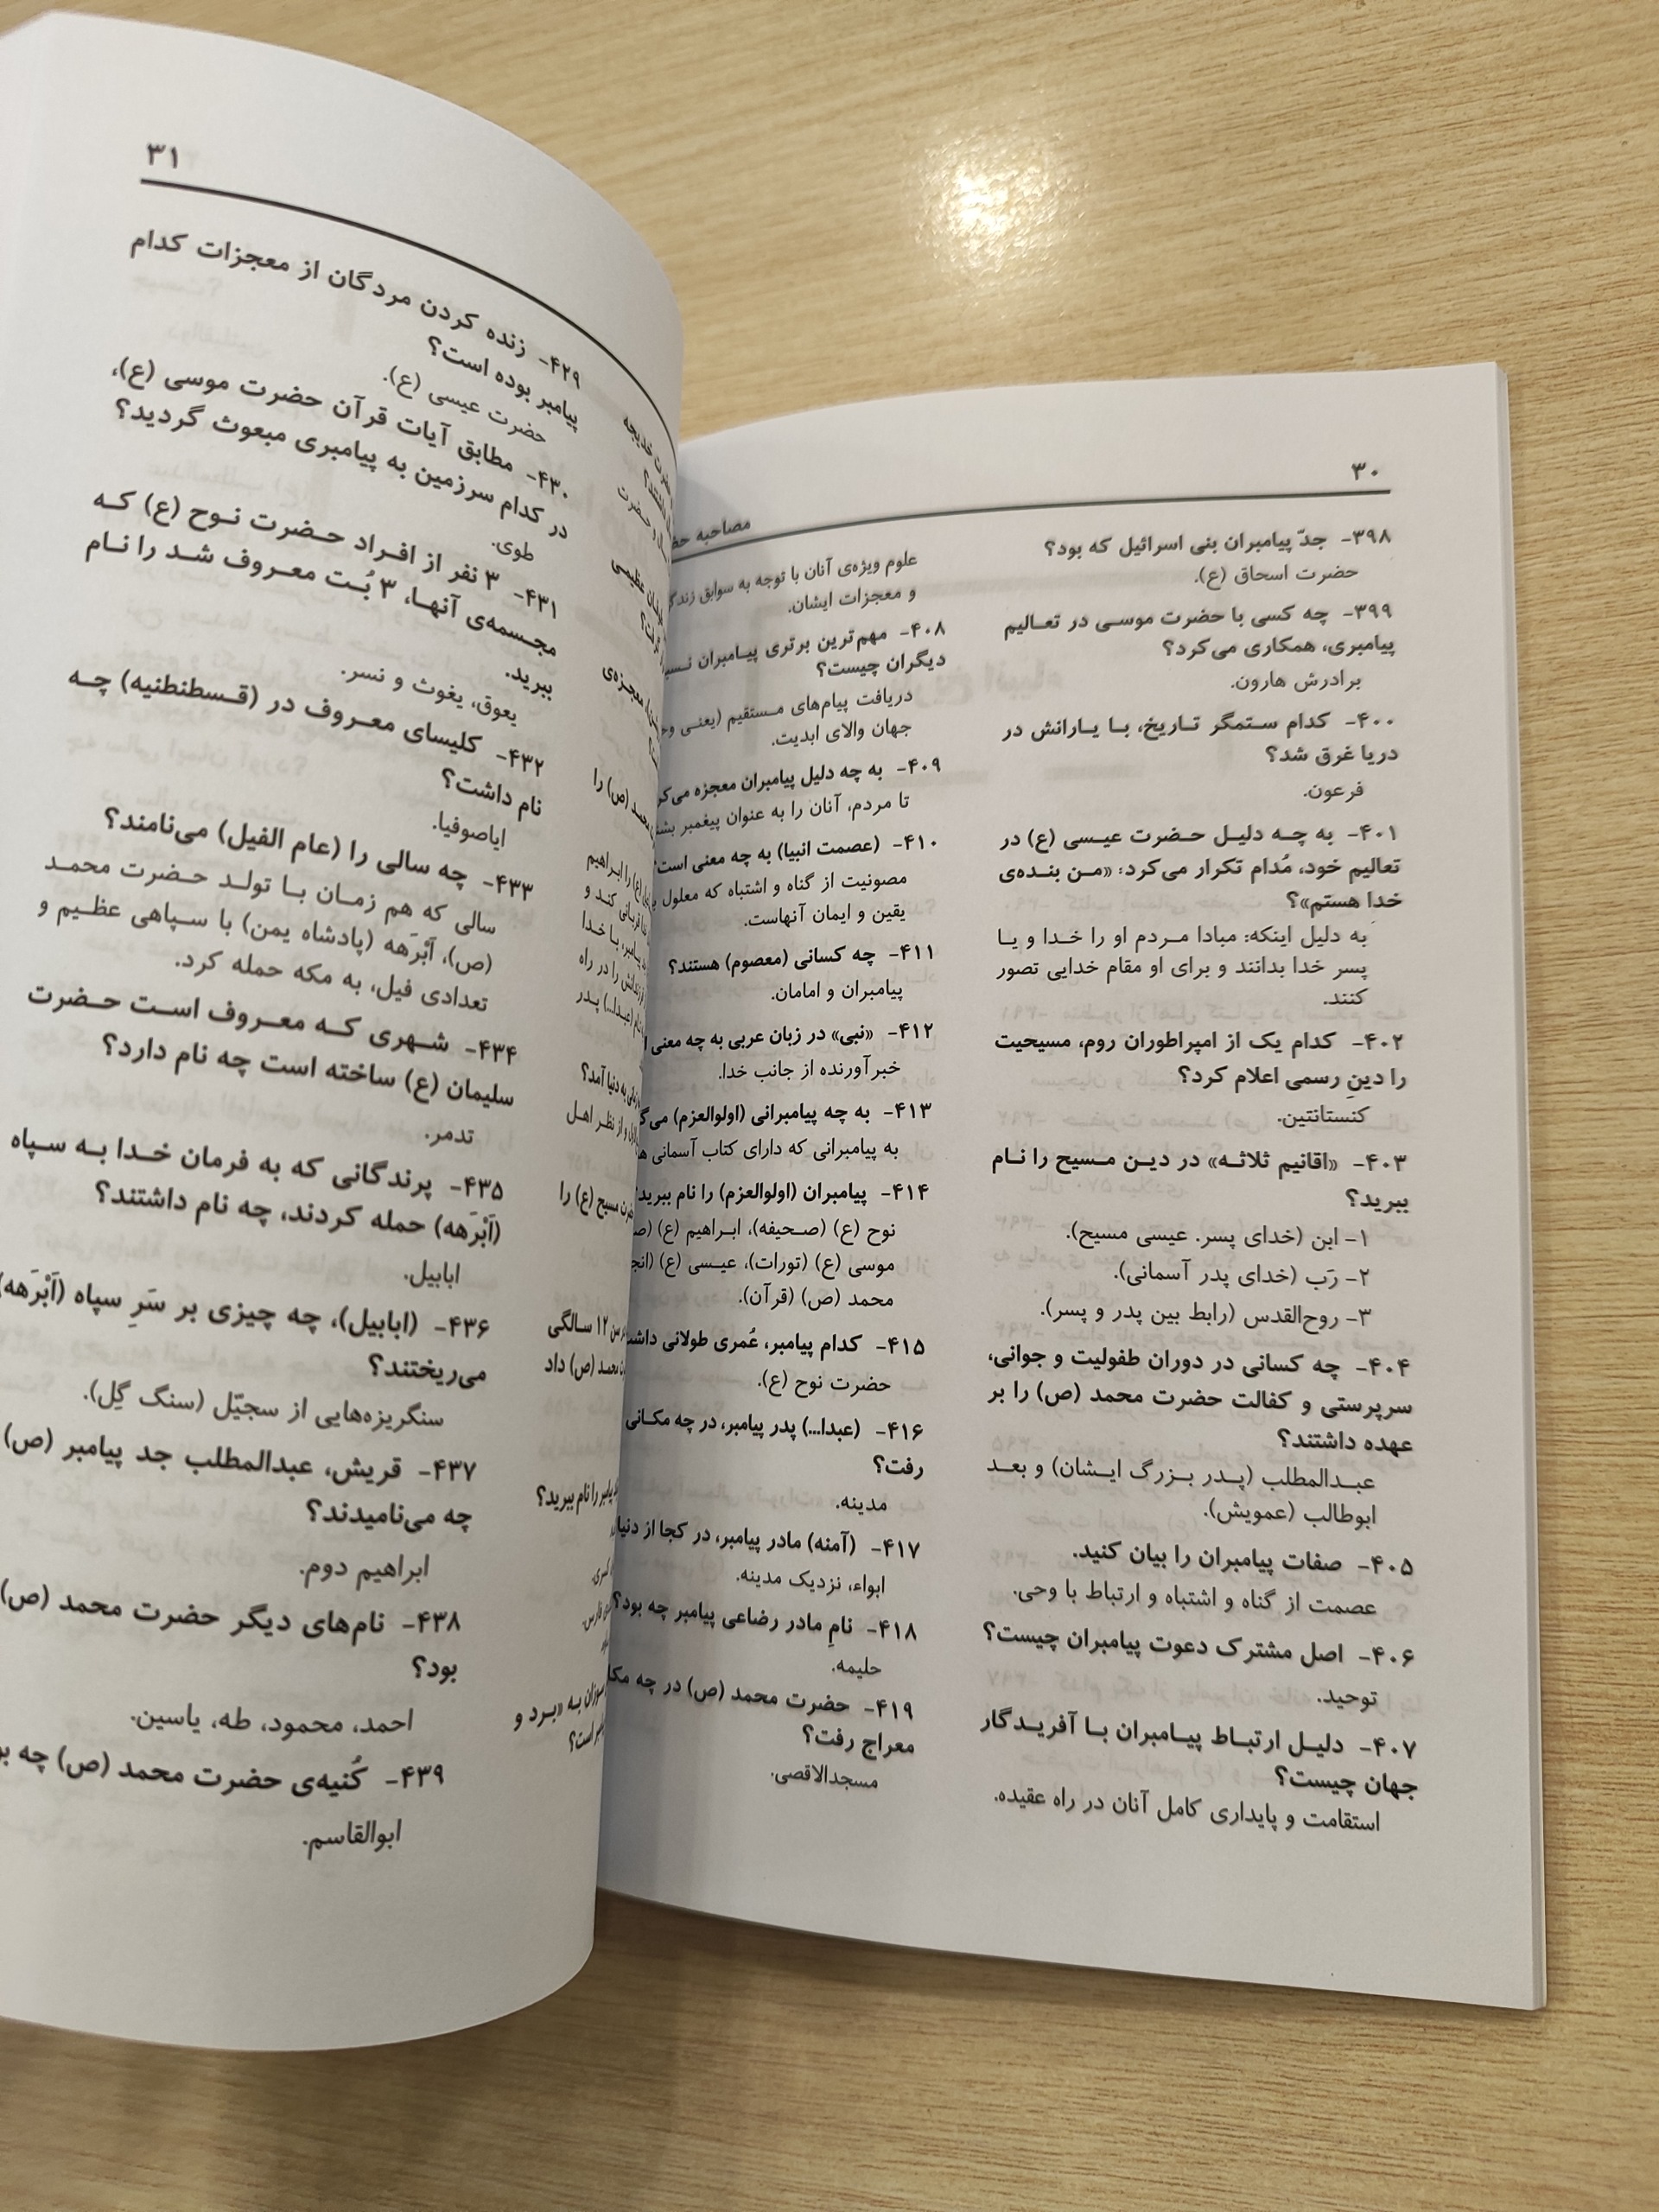 ۳۰
۳۹۸- جدّ پیامبران بنی اسرائیل که بود؟
حضرت اسحاق (ع).
۳۹۹- چه کسی با حضرت موسی در تعالیم
پیامبری، همکاری می‌کرد؟
برادرش هارون.
۴۰۰- کدام ستمگر تاریخ، با یارانش در
دریا غرق شد؟
فرعون.
۴۰۱- به چه دلیل حضرت عیسی (ع) در
تعالیم خود، مُدام تکرار می‌کرد: «من بنده‌ی
خدا هستم»؟
به دلیل اینکه: مبادا مردم او را خدا و یا
پسر خدا بدانند و برای او مقام خدایی تصور
کنند.
۴۰۲- کدام یک از امپراطوران روم، مسیحیت
را دینِ رسمی اعلام کرد؟
کنستانتین.
۴۰۳- «اقانیم ثلاثه» در دین مسیح را نام
ببرید؟
۱- ابن (خدای پسر. عیسی مسیح).
۲- رَب (خدای پدر آسمانی).
۳- روح‌القدس (رابط بین پدر و پسر).
۴۰۴- چه کسانی در دوران طفولیت و جوانی،
سرپرستی و کفالت حضرت محمد (ص) را بر
عهده داشتند؟
عبدالمطلب (پدر بزرگ ایشان) و بعد
ابوطالب (عمویش).
۴۰۵- صفات پیامبران را بیان کنید.
عصمت از گناه و اشتباه و ارتباط با وحی.
۴۰۶- اصل مشترک دعوت پیامبران چیست؟
توحید.
۴۰۷- دلیل ارتباط پیامبران با آفریدگار
جهان چیست؟
استقامت و پایداری کامل آنان در راه عقیده.
مصاحبه
علوم ویژه‌ی آنان با توجه به سوابق
و معجزات ایشان.
۴۰۸- مهم‌ترین برتری پیامبران
دیگران چیست؟
دریافت پیام‌های مستقیم (یعنی
جهان والای ابدیت.
۴۰۹- به چه دلیل پیامبران معجزه
تا مردم، آنان را به عنوان پیغمبر
۴۱۰- (عصمت انبیا) به چه معنی است؟
مصونیت از گناه و اشتباه که معلول
یقین و ایمان آنهاست.
۴۱۱- چه کسانی (معصوم) هستند؟
پیامبران و امامان.
۴۱۲- «نبی» در زبان عربی به چه معنی
خبرآورنده از جانب خدا.
۴۱۳- به چه پیامبرانی (اولوالعزم)
به پیامبرانی که دارای کتاب آسمانی
۴۱۴- پیامبران (اولوالعزم) را نام ببرید؟
نوح (ع) (صحیفه)، ابراهیم (ع)
موسی (ع) (تورات)، عیسی (ع)
محمد (ص) (قرآن).
۴۱۵- کدام پیامبر، عُمری طولانی
حضرت نوح (ع).
۴۱۶- (عبدا...) پدر پیامبر، در چه مکانی
رفت؟
مدینه.
۴۱۷- (آمنه) مادر پیامبر، در کجا از دنیا
ابواء، نزدیک مدینه.
۴۱۸- نامِ مادر رضاعی پیامبر چه بود؟
حلیمه.
۴۱۹- حضرت محمد (ص) در چه
معراج رفت؟
مسجدالاقصی.
۳۱
۴۲۹- زنده کردن مردگان از معجزات کدام
پیامبر بوده است؟
حضرت عیسی (ع).
۴۳۰- مطابق آیات قرآن حضرت موسی (ع)،
در کدام سرزمین به پیامبری مبعوث گردید؟
طوی.
۴۳۱- ۳ نفر از افراد حضرت نوح (ع) که
مجسمه‌ی آنها، ۳ بُت معروف شد را نام
ببرید.
یعوق، یغوث و نسر.
۴۳۲- کلیسای معروف در (قسطنطنیه) چه
نام داشت؟
ایاصوفیا.
۴۳۳- چه سالی را (عام الفیل) می‌نامند؟
سالی که هم زمان با تولد حضرت محمد
(ص)، اَبْرَهه (پادشاه یمن) با سپاهی عظیم و
تعدادی فیل، به مکه حمله کرد.
۴۳۴- شهری که معروف است حضرت
سلیمان (ع) ساخته است چه نام دارد؟
تدمر.
۴۳۵- پرندگانی که به فرمان خدا به سپاه
(اَبْرَهه) حمله کردند، چه نام داشتند؟
ابابیل.
۴۳۶- (ابابیل)، چه چیزی بر سَرِ سپاه (اَبْرَهه)
می‌ریختند؟
سنگریزه‌هایی از سجیّل (سنگ گِل).
۴۳۷- قریش، عبدالمطلب جد پیامبر (ص)
چه می‌نامیدند؟
ابراهیم دوم.
۴۳۸- نام‌های دیگر حضرت محمد (ص)
بود؟
احمد، محمود، طه، یاسین.
۴۳۹- کُنیه‌ی حضرت محمد (ص) چه
ابوالقاسم.